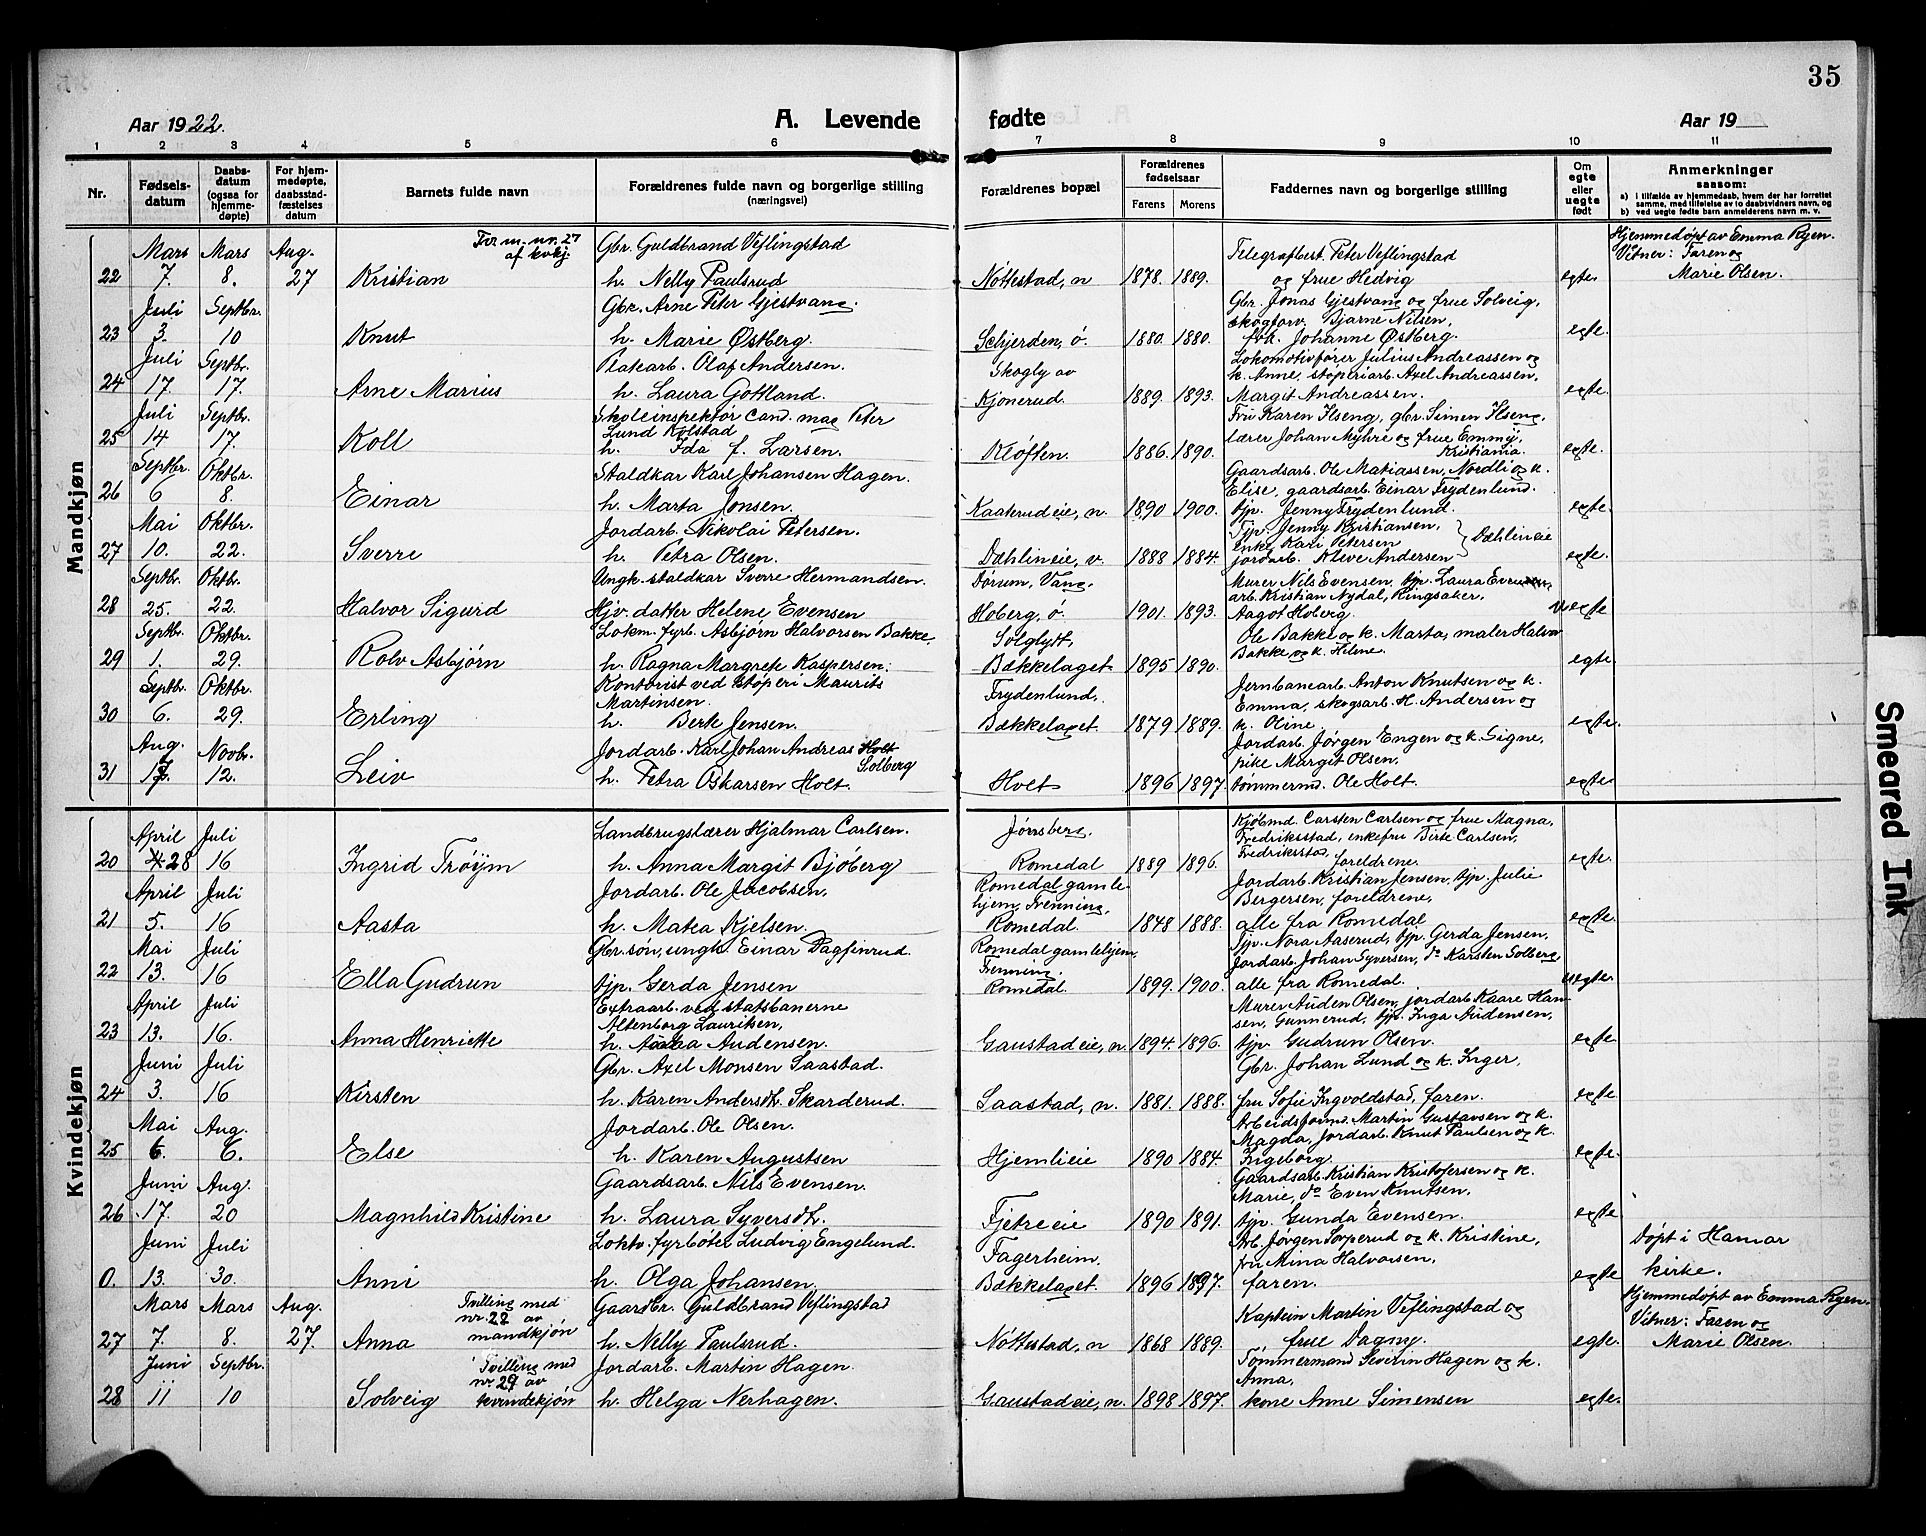 35
Aar 1922.
A. Levende
fødte
Aar 19
1 2 3 4 5 6 7 8 9 10 11
Nr.
Fødsels-
datum
Daabs-
datum
(ogsaa for
hjemme-
døpte)
For hjem-
medøpte,
daabsstad-
fæstelses
datum
Barnets fulde navn
Forældrenes fulde navn og borgerlige stilling
(næringsvei)
Forældrenes bopæl
Forældrenes
fødselsaar
Farens
Morens
Faddernes navn og borgerlige stilling
Om
egte
eller
uegte
født
Anmerkninger
saasom:
a) i tilfælde av hjemmedaab, hvem der har forrettet
samme, med tilføielse av to daabsvidners navn, og
b) ved uegte fødte barn anmelderens navn m. v.
Mandkjøn
Mars Mars Aug. Tvr. m. nr. 27 Gbr. Guldbrand Veflingstad Telegrafbest. Peter Veflingstad Hjemmedøpt av Emma Ryen.
af kvkj. Vitner: Faren og
22 7. 8. 27 Kristian h. Nelly Paulsrud Nøttestad, n 1878. 1889. og frue Hedvig egte. Marie Olsen.
Juli Septbr. Gbr. Arne Peter Gjestvang. Gbr. Jonas Gjestvang og frue Solveig,
skogforv. Bjarne Nilsen,
23 3. 10 Knut h. Marie Østberg. Schjerden, ø. 1880. 1880. frk. Johanne Østberg. egte.
Juli Septbr. Platearb. Olaf Andersen. Skogly av Lokomotivfører Julius Andreassen og
k. Anne, støperiarb. Axel Andreassen,
24 17. 17. Arne Marius h. Laura Gottland. Kjonerud. 1889. 1893. Margit Andreassen. egte.
Juli Septbr. Skoleinspektør cand. mag Peter Fru Karen Ilseng, gbr. Simen Ilseng,
Lund Kolstad lærer Johan Myhre og frue Emmy,
25 14 17. Koll h. Ida f. Larsen. Kløften. 1886. 1890. Kristiania. egte.
Septbr. Oktbr. Staldkar Karl Johansen Hagen. Gaardsarb. Ole Matiassen, Nordli og k.
Elise, gaardsarb. Einar Frydenlund.
26 6 8. Einar h. Marta Jonsen. Kaaterudeie, n. 1890 1900. tjp. Jenny Frydenlund. egte.
Mai Oktbr. Jordarb. Nikolai Petersen. Tjp. Jenny Kristiansen,
enke Kari Petersen Dæhlineie
27 10. 22. Sverre h. Petra Olsen. Dæhlineie, v. 1888 1884. jordarb. Kleve Andersen egte.
Septbr. Oktbr. Ungk. staldkar Sverre Hermandsen. Dørum, Vang. Murer Nils Evensen, tjp. Laura Evensen,
arb. Kristian Nydal, Ringsaker,
28 25. 22. Halvor Sigurd Hjv. datter Helene Evensen Hoberg, ø. 1901. 1893. Aagot Hoberg. uegte
Septbr. Oktbr. Lokm. fyrb. Asbjørn Halvorsen Bakke. Solglytt, Ole Bakke og k. Marta, maler Halvor
29 1. 29. Rolv Asbjørn h. Ragna Margrete Kaspersen. Bækkelaget. 1895 1890. Bakke og k. Helene. egte.
Septbr. Oktbr. Kontorist ved støperi Maurits Frydenlund, Jernbanearb. Anton Knutsen og k.
Martinsen. Emma, skogsarb. H. Andersen og
30 6. 29. Erling h. Berte Jensen. Bækkelaget. 1879 1889. k. Oline. egte.
Aug. Novbr. Jordarb. Karl Johan Andreas Holt Jordarb. Jørgen Engen og k. Signe,
Solberg pike Margit Olsen,
31 17. 12. Leiv h. Petra Oskarsen Holt. Holt 1896 1897. tømmermd. Ole Holt. egte.
Kvindekjøn
April Juli Landbrugslærer Hjalmar Carlsen. Jønsberg, Kjøbmd. Carsten Carlsen og frue Magna,
Fredriksstad, enkefru Birte Carlsen,
20 28 16 Ingrid Trøym h. Anna Margit Bjøberg Romedal 1889 1896. Fredriksstad, foreldrene. egte.
April Juli Jordarb. Ole Jacobsen. Romedal gamle- Jordarb. Kristian Jensen, tjp. Julie
hjem, Frenning, Bergersen, foreldrene,
21 5. 16 Aasta h. Matea Kjelsen. Romedal. 1848 1888. alle fra Romedal egte.
Mai Juli Gbr. søn, ungk. Einar Dagfinrud. Romedal gamlehjem, Tjp. Nora Aaserud, tjp. Gerda Jensen,
Frenning. Jordarb. Johan Syversen, do Karsten Solberg
22 13. 16 Ella Gudrun tjp. Gerda Jensen Romedal. 1899. 1900. alle fra Romedal. uegte.
April Juli Extraarb. ved statsbanerne Murer Auden Olsen, jordarb. Kaare Han-
Altenborg Lauritsen, sen, Gunnerud, tjp. Inga Audensen,
23 13. 16. Anna Henriette h. Audensen. Gaustadeie, n. 1894. 1896. tjp. Gudrun Olsen. egte.
Juni Juli Gbr. Axel Monsen Saastad. Gbr. Johan Lund og k. Inger,
24 3. 16 Kirsten h. Karen Andersdt. Skarderud. Saastad, n. 1881. 1888. fru Sofie Ingvoldstad, faren. egte.
Mai Aug. Jordarb. Ole Olsen. Arbeidsformd. Martin Gustavsen og k.
Magda, jordarb. Knut Paulsen og k.
25 6. 6. Else h. Karen Augustsen Hjemlieie 1890 1884. Ingeborg. egte.
Juni Aug. Gaardsarb. Nils Evensen. Gaardsarb. Kristian Kristofersen og k.
Marie, do Even Knutsen.
26 17. 20 Magnhild Kristine h. Laura Syversdt. Fjetreeie 1890 1891. tjp. Gunda Evensen. egte.
Juni Juli Loktv. fyrbøter Ludvig Engelund. Fagerheim, Arb. Jørgen Torperud og k. Kristine, Døpt i Hamar
fru Mina Halvorsen,
0. 13. 30. Anni h. Olga Johansen. Bækkelaget. 1896 1897. faren. egte kirke.
Mars Mars Aug. Tvilling med Gaardbr. Guldbrand Veflingstad Kaptein Martin Veflingstad og Hjemmedøpt av Emma Ryen.
nr. 22 av Vitner: Faren og
27 7. 8. 27. Anna mandkjøn h. Nelly Paulsrud. Nøttestad, n 1868 1889. frue Dagny. egte. Marie Olsen.
Juni Septbr. Tvilling med Jordarb. Martin Hagen. Tømmermand Severin Hagen og k.
nr. 29 av Anna,
28 11 10 Solveig kvindekjøn h. Helga Nerhagen. Gaustadeie, n. 1898 1897. kone Anne Simensen egte.
Smeared Ink